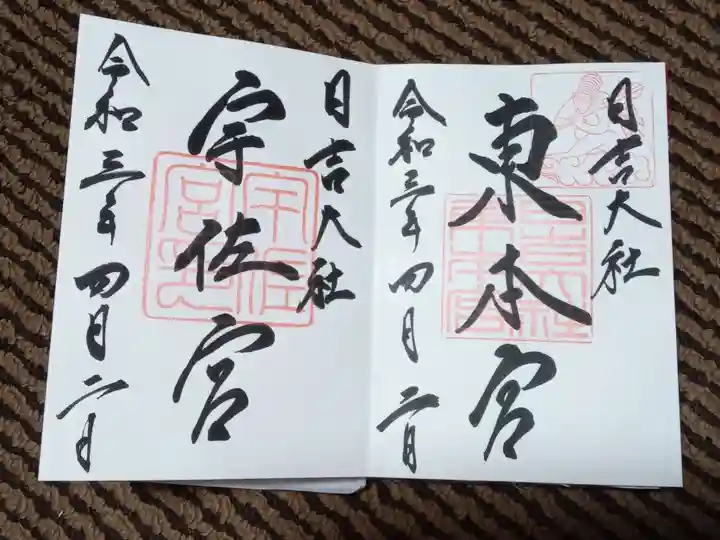 日吉大社
東本宮
令和三年四月二日
日吉大社
宇佐宮
令和三年四月二日